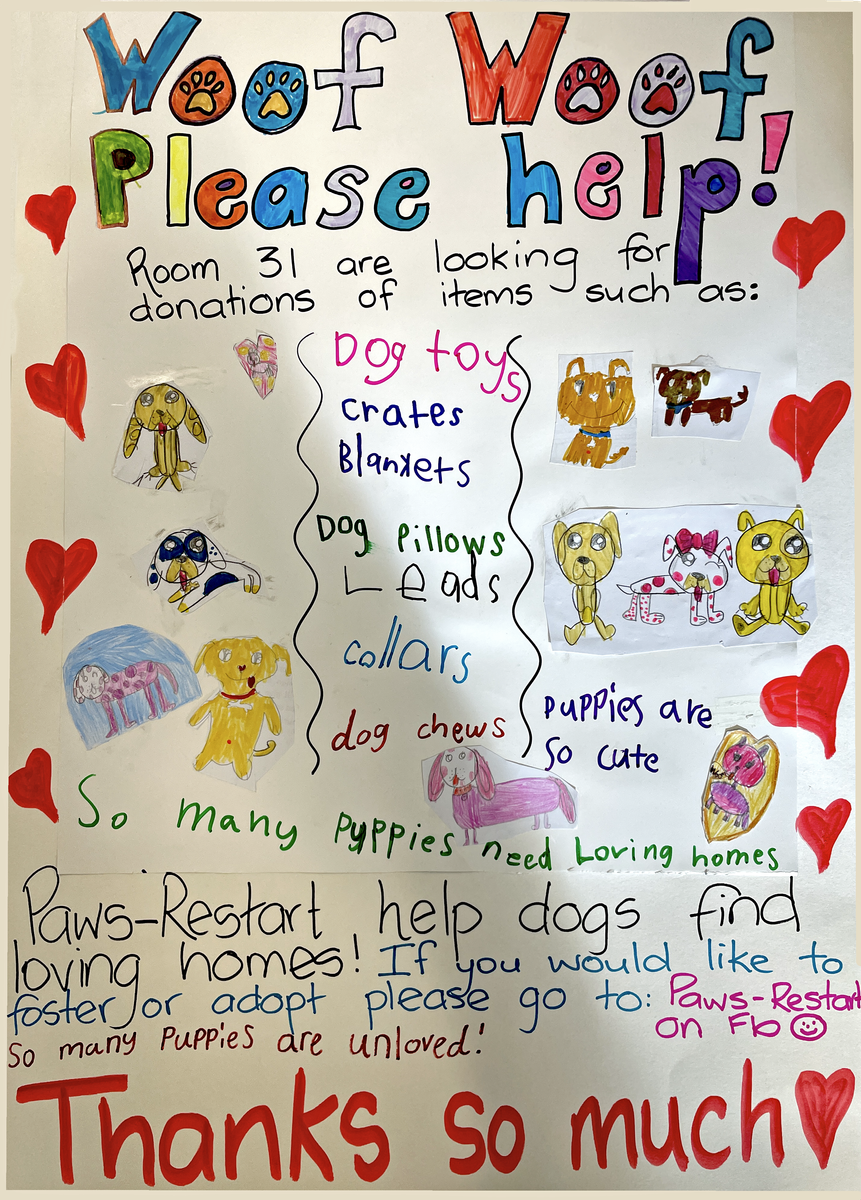 Woof Woof
Please help!
Room 31 are looking for
donations of items such as:
Dog toys
crates
Blankets
Dog Pillows
Leads
collars
dog chews
puppies are
so cute
So many Puppies need Loving homes
Paws-Restart help dogs find
loving homes! If you would like to
foster or adopt please go to: Paws-Restart
on Fb
So many Puppies are unloved!
Thanks so much